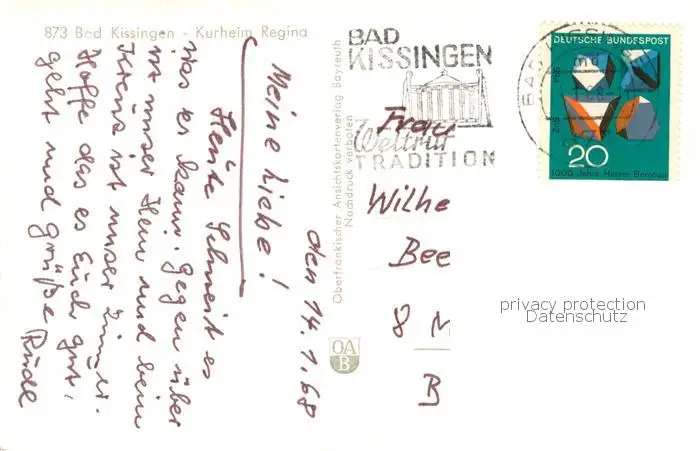 873 Bad Kissingen - Kurheim Regina
den 14.1.68
Meine Liebe!
Heute Schneit es
was es kann. Gegen über
ist unser Heim und beim
Kreuz ist unser Zimmer.
Hoffe das es Euch gut,
geht und grüße
Oberfränkischer Ansichtskartenverlag Bayreuth
Nachdruck verboten
OA
B
BAD
KISSINGEN
Weltruf
TRADITION
BAD KISSI
DEUTSCHE BUNDESPOST
20
1000 Jahre Harzer Bergbau
Frau
Wilhe
Bee
8 M
B
privacy protection
Datenschutz